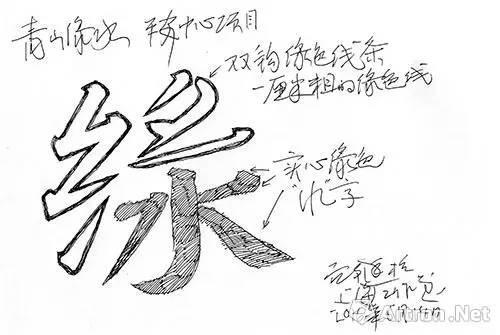 青山绿水 平安中心项目
双钩绿色线条
一厘米粗的绿色线
綠
实心绿色
“水”字
上海
Artron.Net